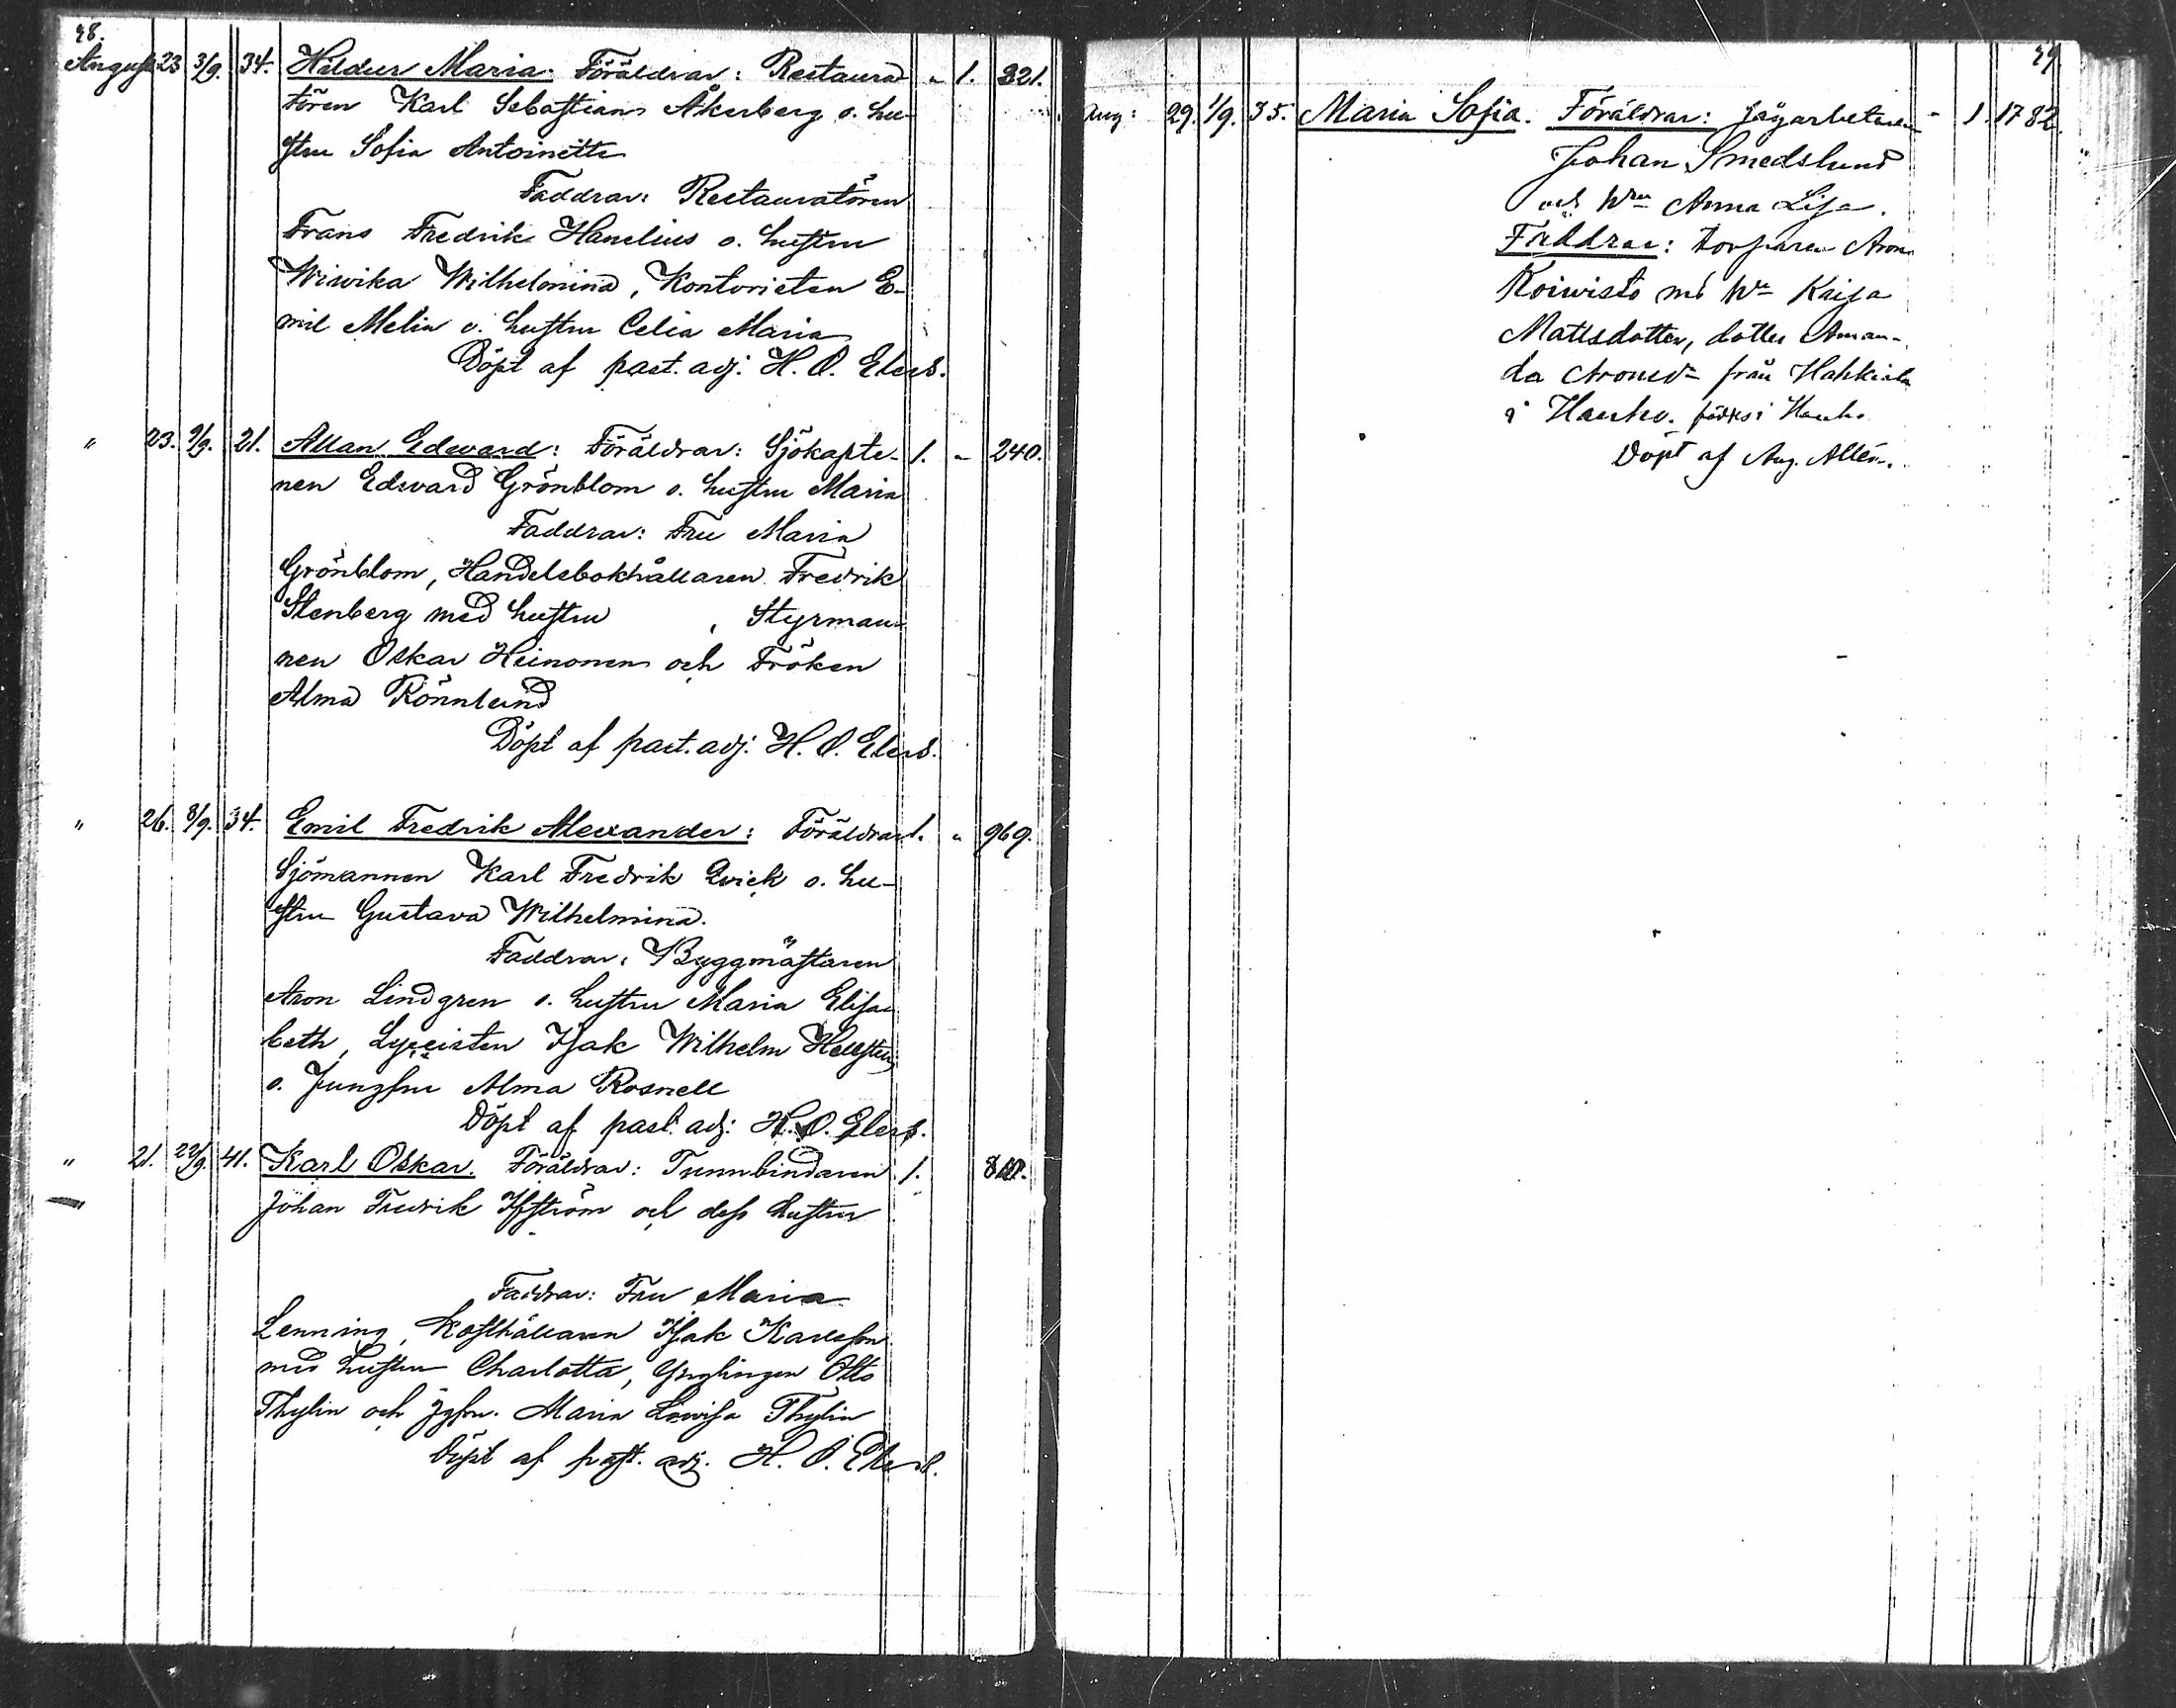 98.
August 23 3/9. 34. Hildur Maria. Föräldrar: Restaura- " 1. 321.
tören Karl Sebastian Åkerberg o. hu-
stru Sofia Antoinette
Faddrar: Restauratören
Frans Fredrik Hanelius o. hustru
Wiwika Wilhelmina, Kontoristen E-
mil Melin o. hustru Celia Maria
Döpt af past. adj. H. O. Elers.
" 23. 9/9. 21. Allan Edward: Föräldrar: Sjökapte- 1. " 240.
nen Edward Grönblom o. hustru Maria
Faddrar: Fru Maria
Grönblom, Handelsbokhållaren Fredrik
Stenberg med hustru , Styrman-
nen Oskar Heinonen och Fröken
Alma Rönnlund
Döpt af past. adj. H. O. Elers.
" 26. 8/9. 34. Emil Fredrik Alexander: Föräldrar 1. " 969.
Sjömannen Karl Fredrik Qvick o. hu-
stru Gustava Wilhelmina.
Faddrar: Byggmästaren
Aron Lindgren o. hustru Maria Elisa-
beth, Lyceisten Isak Wilhelm Hellsten
o. Jungfru Alma Rosnell
Döpt af past. adj. H. O. Elers.
" 21. 22/9. 41. Karl Oskar. Föräldrar: Tunnbindaren 1.
Johan Fredrik och dess hustru
Faddrar: Fru Maria
Lenning, Isak Karlsson
med hustru Charlotta, Ynglingen Otto
Thylin och Jgfru. Maria Lovisa Thylin
Döpt af past. adj. H. O. Elers.
99.
Aug: 29. 1/9. 35. Maria Sofia. Föräldrar: Sågarbetaren " 1. 1782.
Johan Smedslund
och h:u Anna Lisa.
Faddrar: torparen Aron
Koivisto med h:u Kaisa
Mattsdotter, dotter Aman-
da Aronsd: från
i Hauho.
Döpt af Aug.